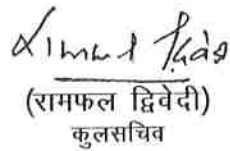 (रामफल द्विवेदी)
कुलसचिव